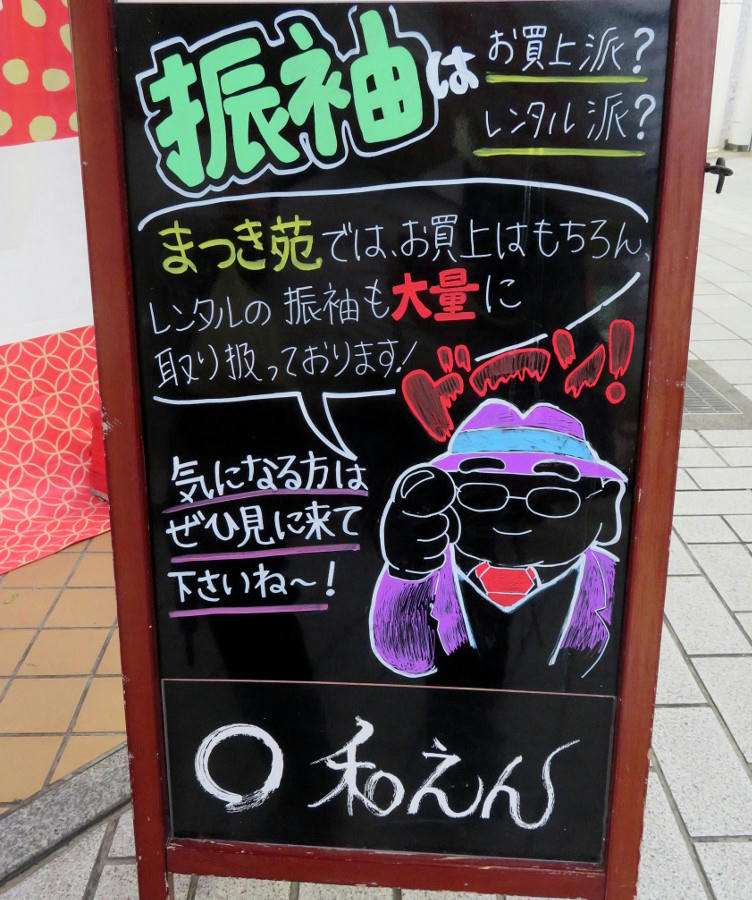 振袖は
お買上派?
レンタル派?
まつき苑では、お買上はもちろん、
レンタルの振袖も大量に
取り扱っております!
ドーン!
気になる方は
ぜひ見に来て
下さいね～!
和えん